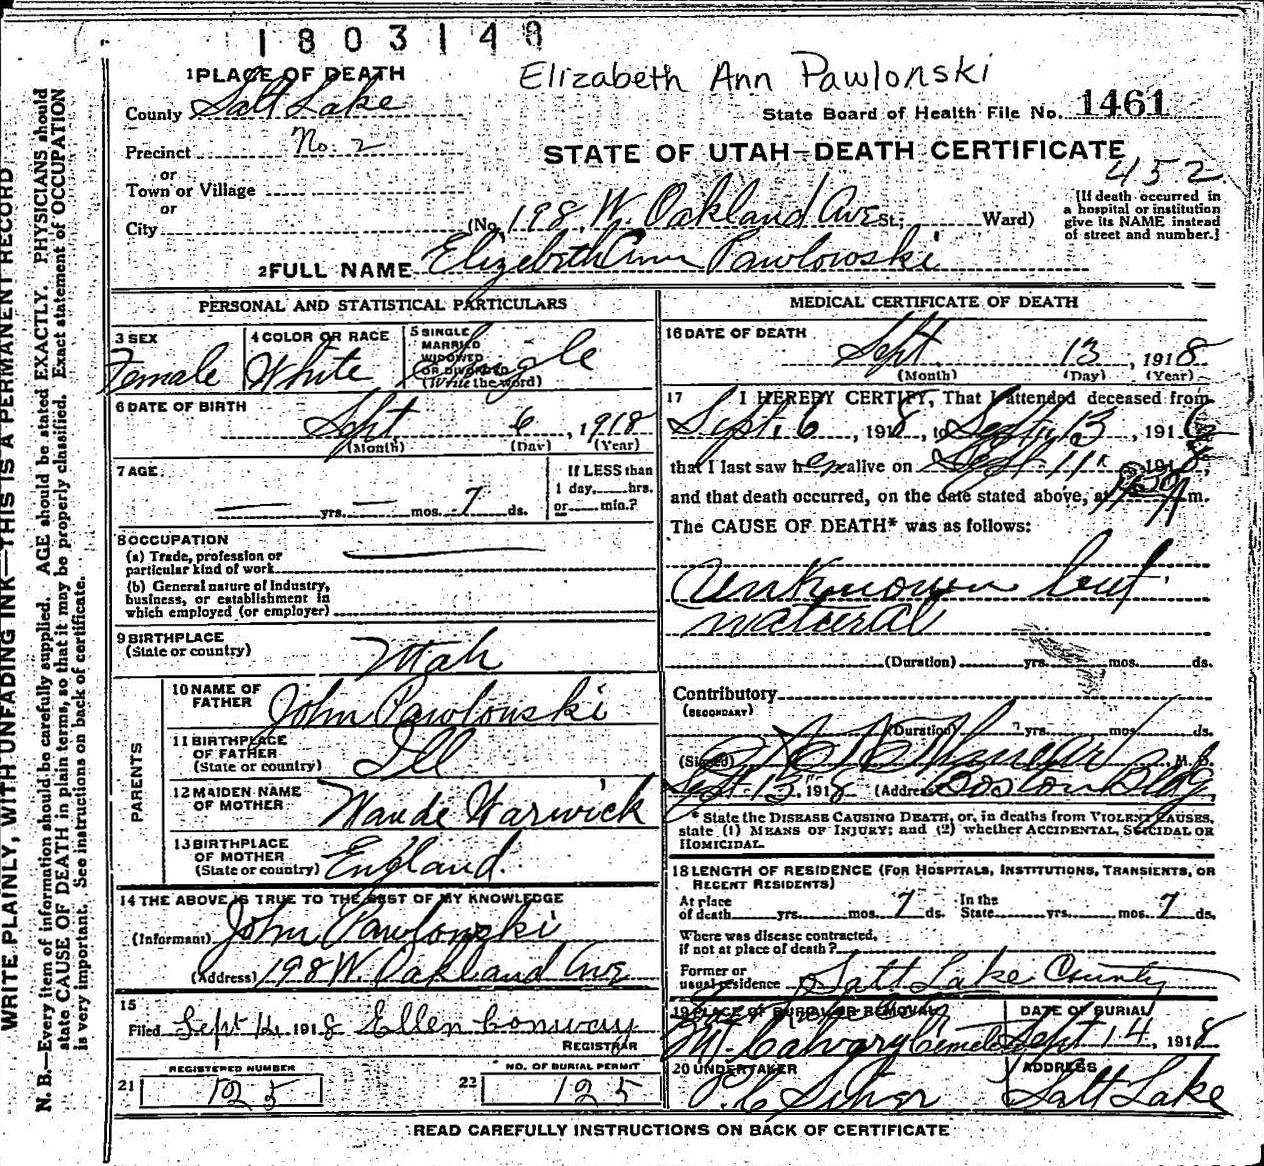 1803148
Elizabeth Ann Pawlonski
1 PLACE OF DEATH
County Salt Lake
State Board of Health File No. 1461
Precinct No. 2
STATE OF UTAH—DEATH CERTIFICATE
452
or
Town or Village
or
City
(No. 198 W. Oakland Ave St; Ward)
[If death occurred in
a hospital or institution
give its NAME instead
of street and number.]
2 FULL NAME Elizebeth Ann Pawlowski
PERSONAL AND STATISTICAL PARTICULARS
3 SEX
Female
4 COLOR OR RACE
White
5 SINGLE
MARRIED
WIDOWED
OR DIVORCED
(Write the word)
Single
6 DATE OF BIRTH
Sept 6, 1918
(Month) (Day) (Year)
7 AGE
yrs. mos. 7 ds.
If LESS than
1 day, hrs.
or min.?
8 OCCUPATION
(a) Trade, profession or
particular kind of work
(b) General nature of industry,
business, or establishment in
which employed (or employer)
9 BIRTHPLACE
(State or country) Utah
PARENTS
10 NAME OF
FATHER John Pawlonski
11 BIRTHPLACE
OF FATHER
(State or country) Ill
12 MAIDEN NAME
OF MOTHER Maude Warwick
13 BIRTHPLACE
OF MOTHER
(State or country) England.
14 THE ABOVE IS TRUE TO THE BEST OF MY KNOWLEDGE
(Informant) John Pawlonski
(Address) 198 W. Oakland Ave
15
Filed Sept 14 1918 Ellen Conway
REGISTRAR
21 REGISTERED NUMBER
125
22 NO. OF BURIAL PERMIT
125
MEDICAL CERTIFICATE OF DEATH
16 DATE OF DEATH
Sept 13, 1918
(Month) (Day) (Year)
17 I HEREBY CERTIFY, That I attended deceased from
Sept. 6, 1918, to Sept 13, 191
that I last saw h alive on Sept 11, 1918,
and that death occurred, on the date stated above, at m.
The CAUSE OF DEATH* was as follows:
Unknown but
natural
(Duration) yrs. mos. ds.
Contributory
(SECONDARY)
(Duration) yrs. mos. ds.
(Signed) M. D.
Sept 13, 1918 (Address) Boston Bldg,
* State the DISEASE CAUSING DEATH, or, in deaths from VIOLENT CAUSES,
state (1) MEANS OF INJURY; and (2) whether ACCIDENTAL, SUICIDAL OR
HOMICIDAL.
18 LENGTH OF RESIDENCE (FOR HOSPITALS, INSTITUTIONS, TRANSIENTS, OR
RECENT RESIDENTS)
At place
of death yrs. mos. 7 ds. In the
State yrs. mos. 7 ds.
Where was disease contracted,
if not at place of death?
Former or
usual residence Salt Lake County
19 PLACE OF BURIAL OR REMOVAL
Mt. Calvary Cemetery
DATE OF BURIAL
Sept 14, 1918
20 UNDERTAKER
ADDRESS
Salt Lake
READ CAREFULLY INSTRUCTIONS ON BACK OF CERTIFICATE
WRITE PLAINLY, WITH UNFADING INK—THIS IS A PERMANENT RECORD
N. B.—Every item of information should be carefully supplied. AGE should be stated EXACTLY. PHYSICIANS should
state CAUSE OF DEATH in plain terms, so that it may be properly classified. Exact statement of OCCUPATION
is very important. See instructions on back of certificate.